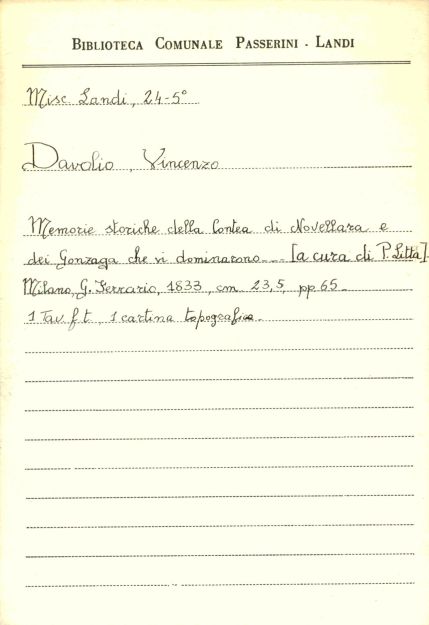 BIBLIOTECA COMUNALE PASSERINI - LANDI
Misc. Landi, 24-5°
Davolio, Vincenzo
Memorie storiche della Contea di Novellara e
dei Gonzaga che vi dominarono... [a cura di P. Litta].
Milano, G. Ferrario, 1833, cm. 23,5, pp 65.
1 Tav. f. t., 1 cartina topografica.